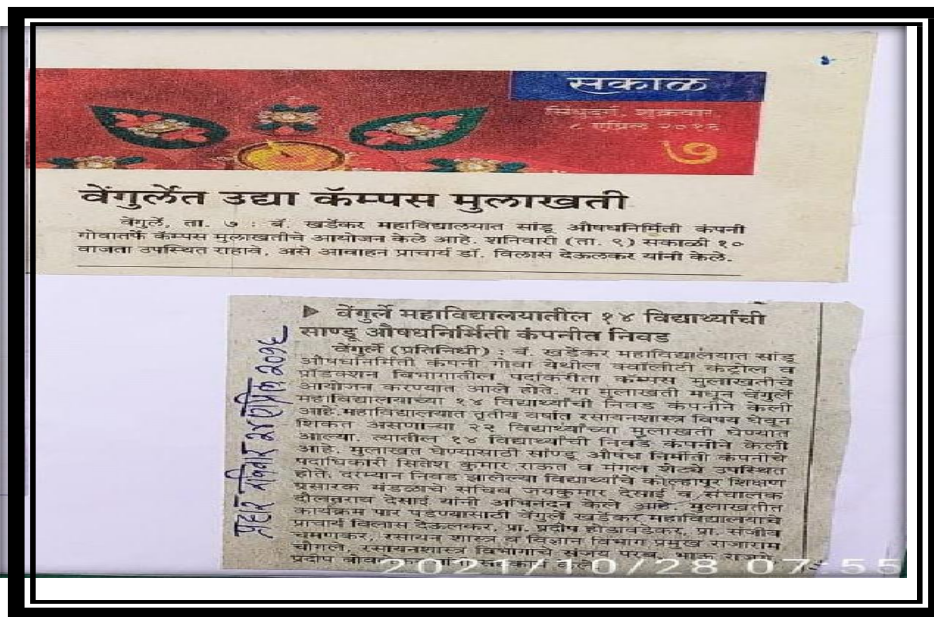 सकाळ
सिंधुदुर्ग, शुक्रवार,
८ एप्रिल २०१६
७
वेंगुर्लेत उद्या कॅम्पस मुलाखती
वेंगुर्ले, ता. ७ : बॅ. खर्डेकर महाविद्यालयात सांडू औषधनिर्मिती कंपनी
गोवातर्फे कॅम्पस मुलाखतीचे आयोजन केले आहे. शनिवारी (ता. ९) सकाळी १०
वाजता उपस्थित राहावे, असे आवाहन प्राचार्य डॉ. विलास देऊलकर यांनी केले.
▶ वेंगुर्ले महाविद्यालयातील १४ विद्यार्थ्यांची
साण्डू औषधनिर्मिती कंपनीत निवड
वेंगुर्ले (प्रतिनिधी) : बॅ. खर्डेकर महाविद्यालयात सांडू
औषधनिर्मिती कंपनी गोवा येथील क्वॉलीटी कंट्रोल व
प्रॉडक्शन विभागातील पदांकरीता कॅम्पस मुलाखतीचे
आयोजन करण्यात आले होते. या मुलाखती मधून वेंगुर्ले
महाविद्यालयाच्या १४ विद्यार्थ्यांची निवड कंपनीने केली
आहे. महाविद्यालयात तृतीय वर्षात रसायनशास्त्र विषय घेवून
शिकत असणाऱ्या २२ विद्यार्थ्यांच्या मुलाखती घेण्यात
आल्या. त्यातील १४ विद्यार्थ्यांची निवड कंपनीने केली
आहे. मुलाखत घेण्यासाठी साण्डू औषध निर्माती कंपनीचे
पदाधिकारी सितेश कुमार राऊत व मंगल शेट्ये उपस्थित
होते. दरम्यान निवड झालेल्या विद्यार्थ्यांचे कोल्हापूर शिक्षण
प्रसारक मंडळाचे सचिव जयकुमार देसाई व संचालक
दौलतराव देसाई यांनी अभिनंदन केले आहे. मुलाखतीत
कार्यक्रम पार पडण्यासाठी वेंगुर्ले खर्डेकर महाविद्यालयाचे
प्राचार्य विलास देऊलकर, प्रा. प्रदीप होडावडेकर, प्रा. संजीव
चमणकर, रसायन शास्त्र व विज्ञान विभाग प्रमुख राजाराम
चौगले, रसायनशास्त्र विभागाचे संजय परब, भाऊ
प्रदीप
प्रहार रविवार २४ एप्रिल २०१६
2021/10/28 07:55